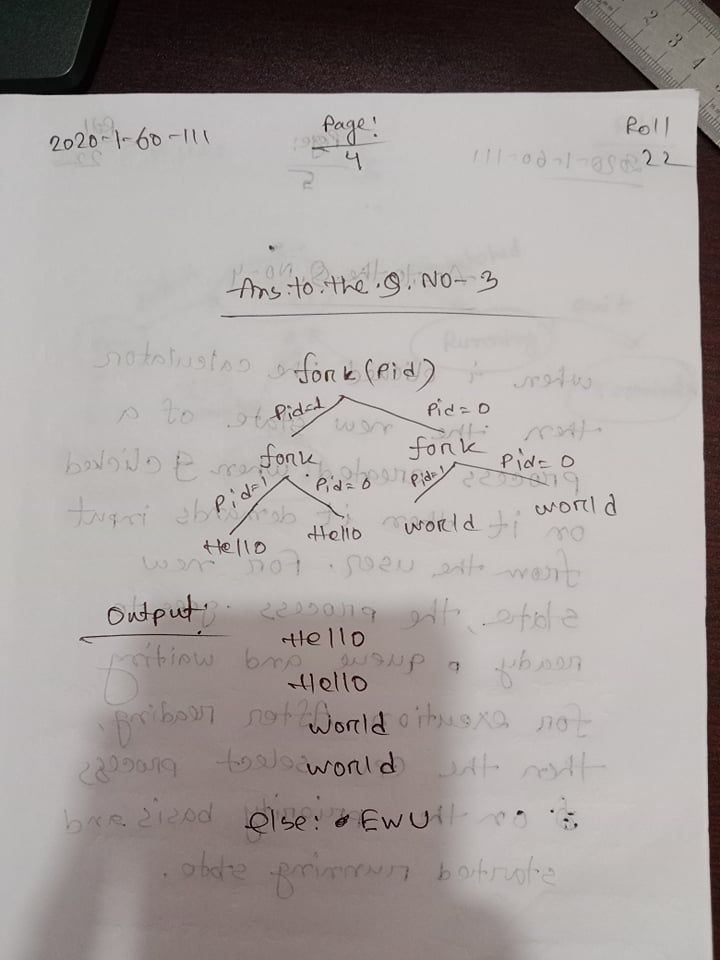 2020-1-60-111
Page:
4
Roll
22
Ans: to. the. Q. NO- 3
fork (Pid)
Pid=1 Pid = 0
fork fork
Pid=1 Pid=0 Pid=1 Pid= 0
Hello Hello World World
Output:
Hello
Hello
World
World
Else: EWU